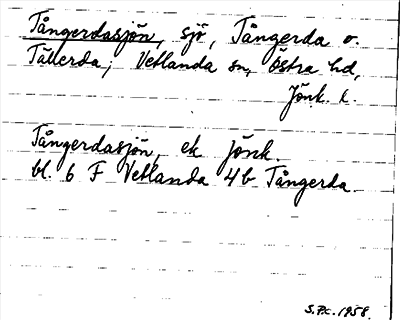 Tångerdasjön, sjö, Tångerda o.
Tällerda; Vetlanda sn, Östra hd,
Jönk. l.
Tångerdasjön, ek Jönk.
bl. 6 F Vetlanda 4b Tångerda.
S.P.c. 1958.